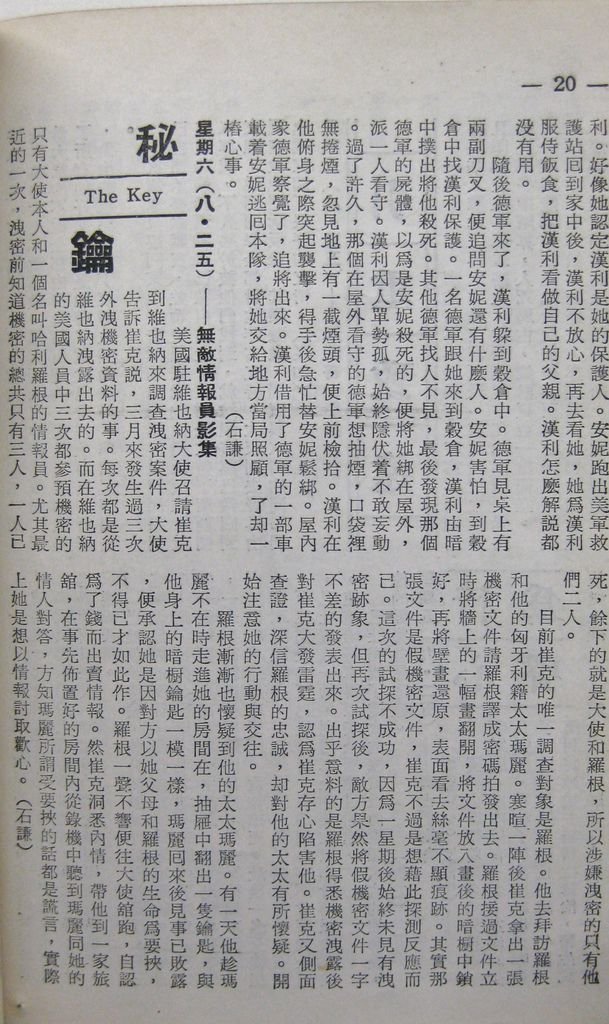 — 20 —
利。好像她認定漢利是她的保護人。安妮跑出美軍救
護站囘到家中後，漢利不放心，再去看她，她爲漢利
服侍飯食，把漢利看做自己的父親。漢利怎麽解説都
没有用。
隨後德軍來了，漢利躲到穀倉中。德軍見桌上有
兩副刀叉，便追問安妮還有什麽人。安妮害怕，到穀
倉中找漢利保護。一名德軍跟她來到穀倉，漢利由暗
中撲出將他殺死。其他德軍找人不見，最後發現那個
德軍的屍體，以爲是安妮殺死的，便將她綁在屋外，
派一人看守。漢利因人單勢孤，始終隱伏着不敢妄動
。過了許久，那個在屋外看守的德軍想抽煙，口袋裡
無捲煙，忽見地上有一截煙頭，便上前檢拾。漢利在
他俯身之際突起襲擊，得手後急忙替安妮鬆綁。屋内
衆德軍察覺了，追將出來。漢利借用了德軍的一部車
載着安妮逃囘本隊，將她交給地方當局照顧，了却一
樁心事。
（石謙）
星期六（八・二五）——無敵情報員影集
秘
The Key
鑰
美國駐維也納大使召請崔克
到維也納來調查洩密案件，大使
告訴崔克説，三月來發生過三次
外洩機密資料的事。每次都是從
維也納洩露出去的。而在維也納
的美國人員中三次都參預機密的
只有大使本人和一個名叫哈利羅根的情報員。尤其最
近的一次，洩密前知道機密的總共只有三人，一人已
死，餘下的就是大使和羅根，所以涉嫌洩密的只有他
們二人。
目前崔克的唯一調查對象是羅根。他去拜訪羅根
和他的匈牙利籍太太瑪麗。寒暄一陣後崔克拿出一張
機密文件請羅根譯成密碼拍發出去。羅根接過文件立
時將牆上的一幅畫翻開，將文件放入畫後的暗橱中鎖
好，再將壁畫還原，表面看去絲毫不顯痕跡。其實那
張文件是假機密文件，崔克不過是想藉此探測反應而
已。這次的試探不成功，因爲一星期後始終未見有洩
密跡象，但再次試探後，敵方杲然將假機密文件一字
不差的發表出來。出乎意料的是羅根得悉機密洩露後
對崔克大發雷霆，認爲崔克存心陷害他。崔克又側面
查證，深信羅根的忠誠，却對他的太太有所懷疑。開
始注意她的行動與交往。
羅根漸漸也懷疑到他的太太瑪麗。有一天他趁瑪
麗不在時走進她的房間在，抽屜中翻出一隻鑰匙，與
他身上的暗橱鑰匙一模一樣，瑪麗囘來後見事已敗露
，便承認她是因對方以她父母和羅根的生命爲要挾，
不得已才如此作。羅根一聲不響便往大使舘跑，自認
爲了錢而出賣情報。然崔克洞悉內情，帶他到一家旅
舘，在事先佈置好的房間內從錄機中聽到瑪麗同她的
情人對答，方知瑪麗所謂受要挾的話都是謊言，實際
上她是想以情報討取歡心。（石謙）